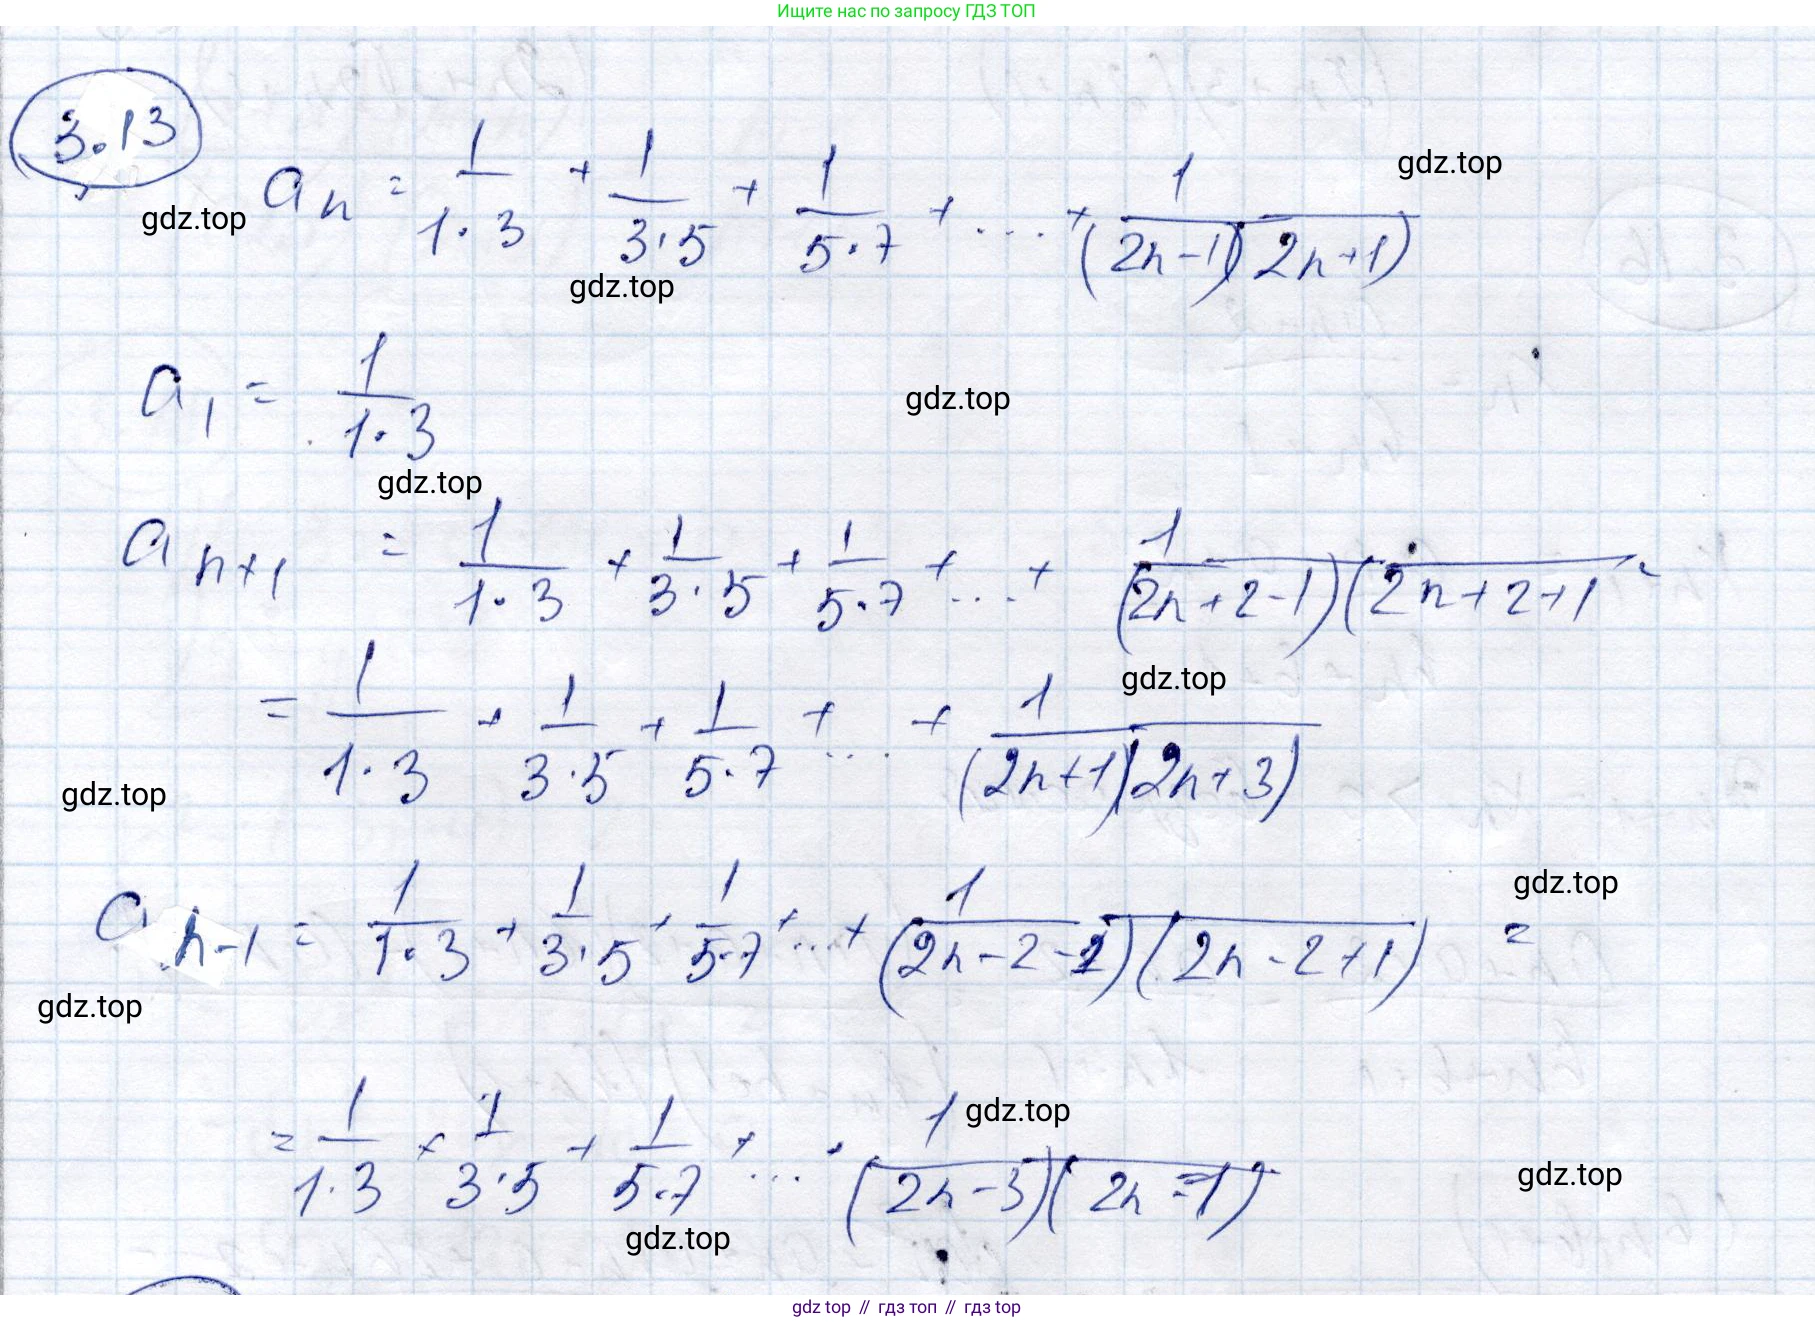 Ищите нас по запросу ГДЗ ТОП
3.13
gdz.top
aₙ = 1/(1·3) + 1/(3·5) + 1/(5·7) + ... + 1/((2n-1)(2n+1))
gdz.top
gdz.top
a₁ = 1/(1·3)
gdz.top
gdz.top
aₙ₊₁ = 1/(1·3) + 1/(3·5) + 1/(5·7) + ... + 1/((2n+2-1)(2n+2+1) =
gdz.top
= 1/(1·3) + 1/(3·5) + 1/(5·7) + ... + 1/((2n+1)(2n+3))
gdz.top
gdz.top
aₙ₋₁ = 1/(1·3) + 1/(3·5) + 1/(5·7) + ... + 1/((2n-2-1)(2n-2+1)) =
gdz.top
gdz.top
= 1/(1·3) + 1/(3·5) + 1/(5·7) + ... + 1/((2n-3)(2n-1))
gdz.top
gdz.top
gdz top // гдз топ // гдз top